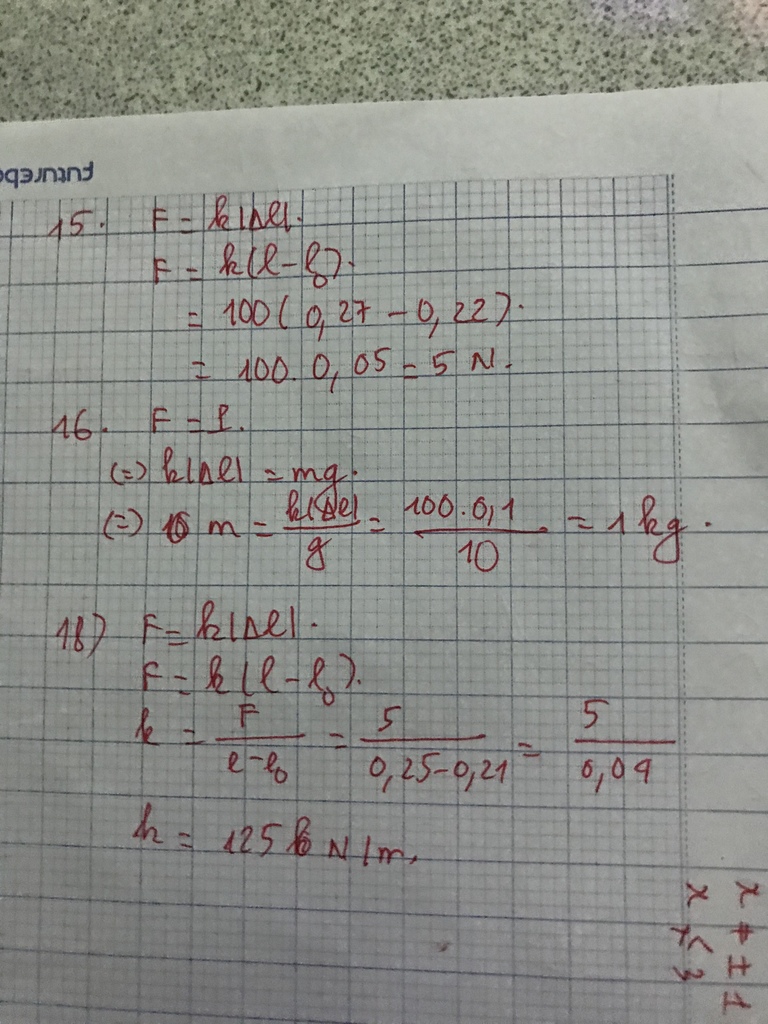 futurebo
15. F = k|Δl|.
F = k(l-l₀).
= 100(0,27-0,22).
= 100.0,05 = 5 N.
16. F = P.
(=) k|Δl| = mg.
(=) m = k|Δl|/g = 100.0,1/10 = 1 kg.
18) F = k|Δl|.
F = k(l-l₀).
k = F/l-l₀ = 5/0,25-0,21 = 5/0,04
k = 125 N/m.
x ≠ ±1
x < 3